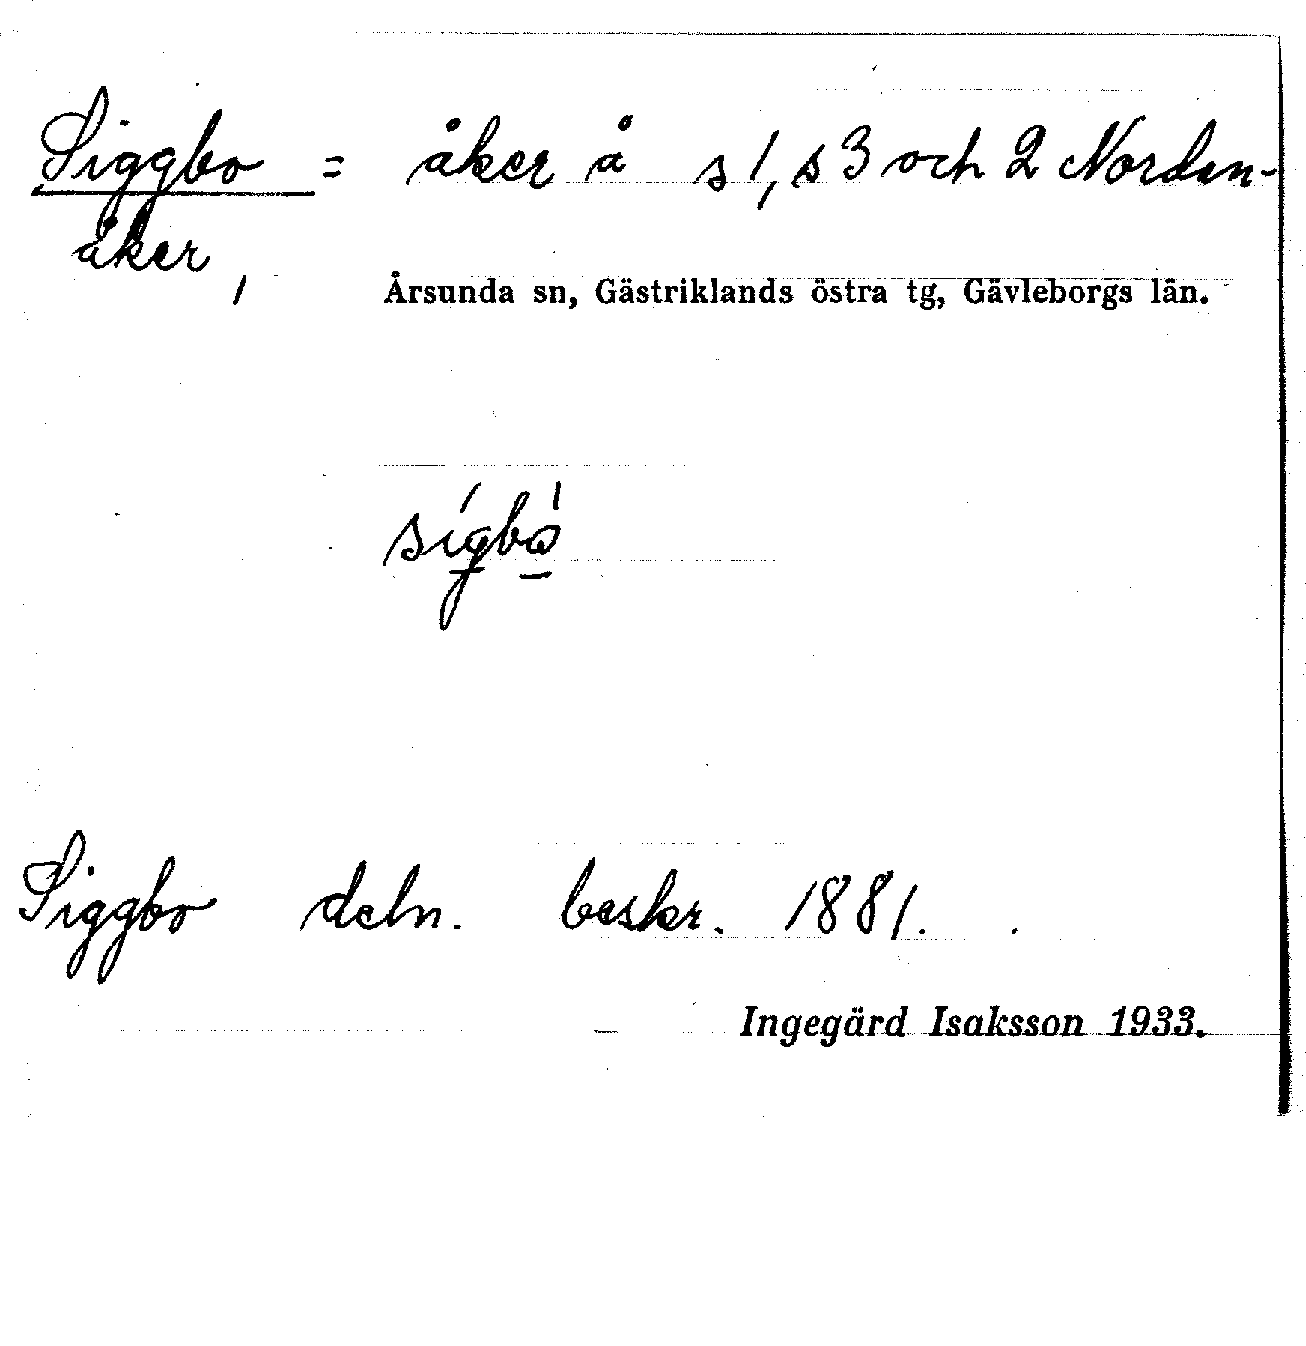 Siggbo = åker å s 1, s 3 och 2 Nordan-
åker,
Årsunda sn, Gästriklands östra tg, Gävleborgs län.
Siggbo deln. beskr. 1881.
Ingegärd Isaksson 1933.